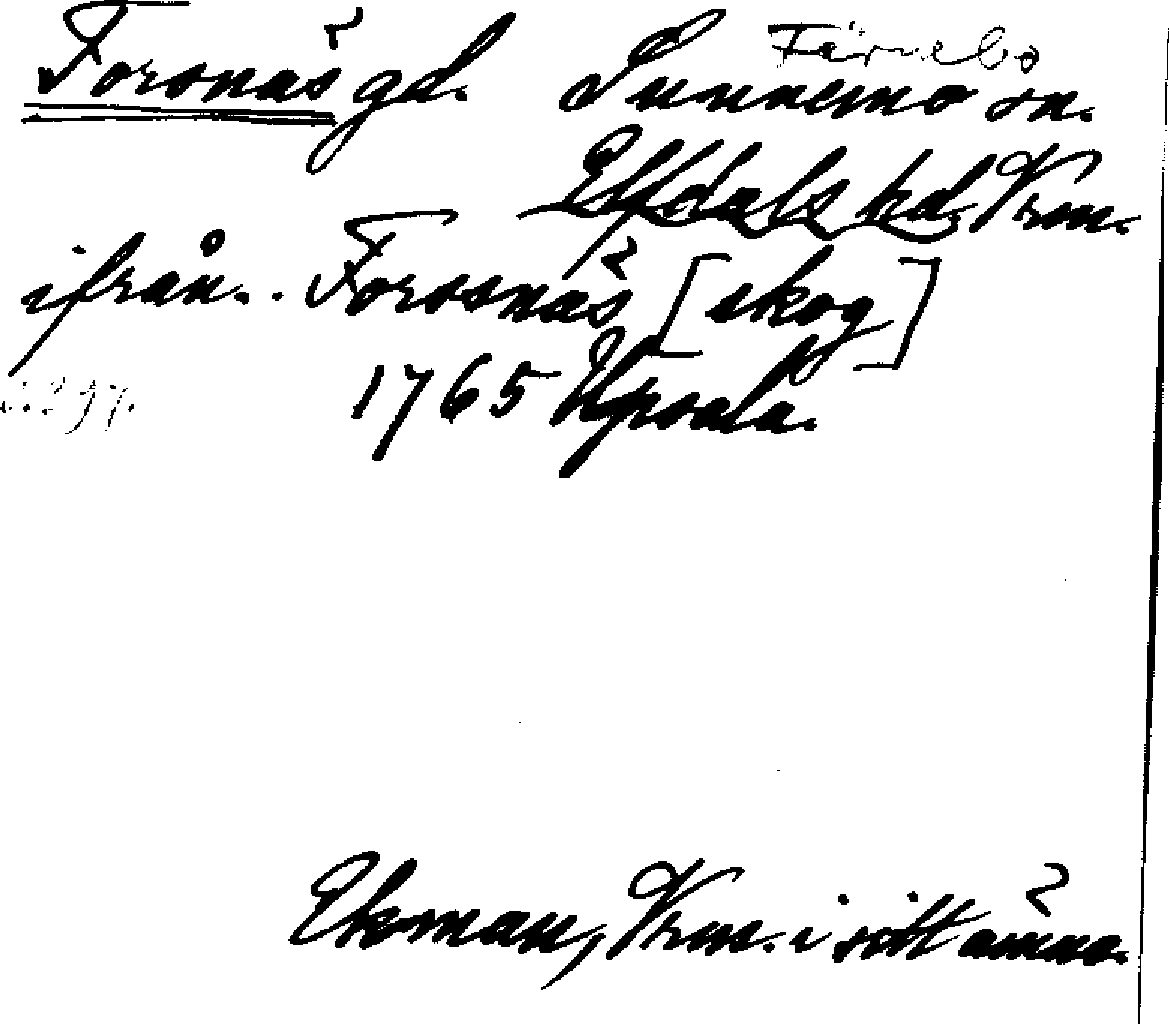 Forsnäs gd. Sunnemo sn.
Färnebo
Elfdals hd. Vrm.
ifrån.. Forssnäs [skog]
1765 Upsala.
Ekman, Vrm. i sitt ämne.